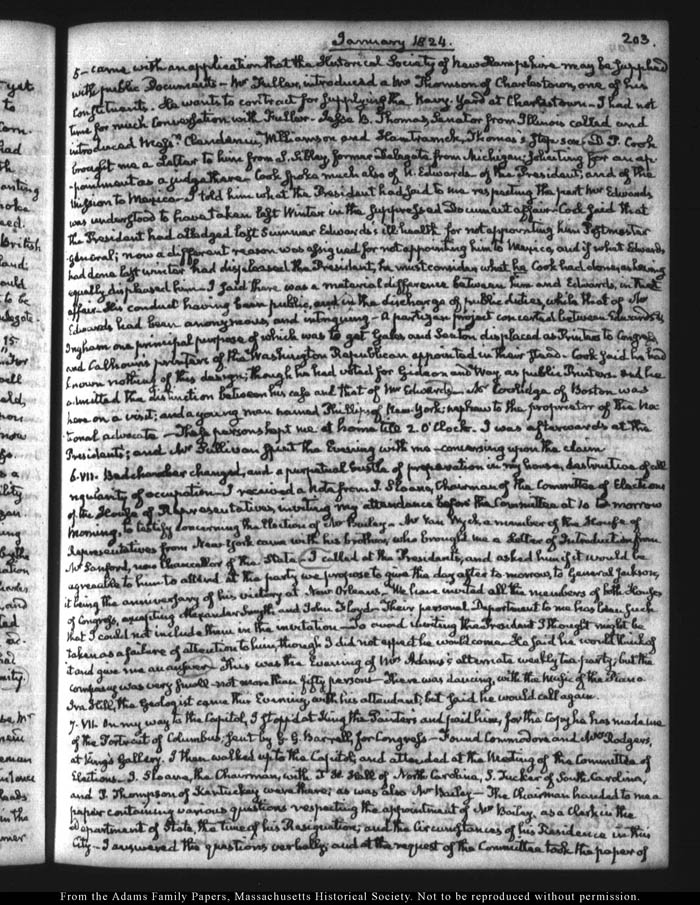 January 1824.
203.
5 - came with an application that the Historical Society of New Hampshire may be supplied
with public Documents - Mr Fuller, introduced a Mr Thomson of Charlestown, one of his
Constituents. He wants to contract for supplying the Navy-Yard at Charlestown - I had not
time for much Conversation with Fuller - Jesse B. Thomas, Senator from Illinois called and
introduced Messrs Clendenin, Williamson and Hamtramck, Thomas's Step-son - D. P. Cook
brought me a Letter to him from S. Sibley, former Delegate from Michigan, soliciting for an ap-
pointment as a judge there. Cook spoke much also of N. Edwards - of the President, and of the
Mission to Mexico - I told him what the President had said to me respecting the part Mr Edwards
was understood to have taken last Winter in the suppressed Document affair - Cook said that
the President had alledged last Summer Edwards's ill health for not appointing him Postmaster
General; now a different reason was assigned for not appointing him to Mexico, and if what Edwards
had done last winter had displeased the President, he must consider what he Cook had done, as having
equally displeased him - I said there was a material difference between him and Edwards, in that
affair. His conduct having been public, and in the discharge of public duties, while that of Mr
Edwards had been anonymous, and intriguing - A partizan project concerted between Edwards &
Ingham one principal purpose of which was to get Gales and Seaton displaced as Printers to Congress
and Calhoun's printers of the Washington Republican appointed in their stead - Cook said he had
known nothing of this design; though he had voted for Gideon and Way, as public Printers. And he
admitted the distinction between his case and that of Mr Edwards - Mr Coolidge of Boston was
here on a visit; and a young man named Phillips of New-York; nephew to the proprietor of the Na-
tional advocate - These persons kept me at home till 2. O'Clock. I was afterwards at the
Presidents; and Mr Sullivan spent the Evening with me - conversing upon the claim
6. VII. Bed chamber changed, and a perpetual bustle of preparation in my house, destructive of all
regularity of occupation - I received a Note from J. Sloane, Chairman of the Committee of Elections
of the House of Representatives, inviting my attendance before the Committee at 10 to morrow
morning, to testify concerning the Election of Mr Bailey - Mr Van Wyck a member of the House of
Representatives from New York came with his brother, who brought me a Letter of Introduction from
Mr Sanford, now Chancellor of the State - I called at the Presidents, and asked him if it would be
agreeable to him to attend at the party we propose to give the day after to morrow, to General Jackson,
it being the anniversary of his victory at New Orleans - We have invited all the members of both Houses
of Congress, excepting Alexander Smyth, and John Floyd - Their personal Deportment to me has been such
that I could not include them in the invitation - To avoid inviting the President I thought might be
taken as a failure of attention to him, though I did not expect he would come. He said he would think of
it and give me an answer - This was the Evening of Mrs Adams's alternate weekly tea party; but the
company was very small - not more than fifty persons - There was dancing, with the Music of the Piano
Ira Hill, the Geologist came this Evening, with his attendant; but said he would call again.
7. VII. On my way to the Capitol, I stopped at King the Painters and paid him, for the Copy he has made me
of the Portrait of Columbus, sent by G. G. Barrell, for Congress - Found Commodore and Mrs Rodgers,
at King's Gallery. I then walked up to the Capitol; and attended at the Meeting of the Committee of
Elections - J. Sloane, the Chairman, with T. H. Hall of North Carolina, S. Tucker of South Carolina,
and P. Thompson of Kentuckey were there; as was also Mr Bailey - The Chairman handed to me a
paper containing various questions respecting the appointment of Mr Bailey, as a Clerk in the
Department of State, the time of his Resignation; and the Circumstances of his Residence in this
City - I answered the questions verbally, and at the request of the Committee took the paper of
From the Adams Family Papers, Massachusetts Historical Society. Not to be reproduced without permission.